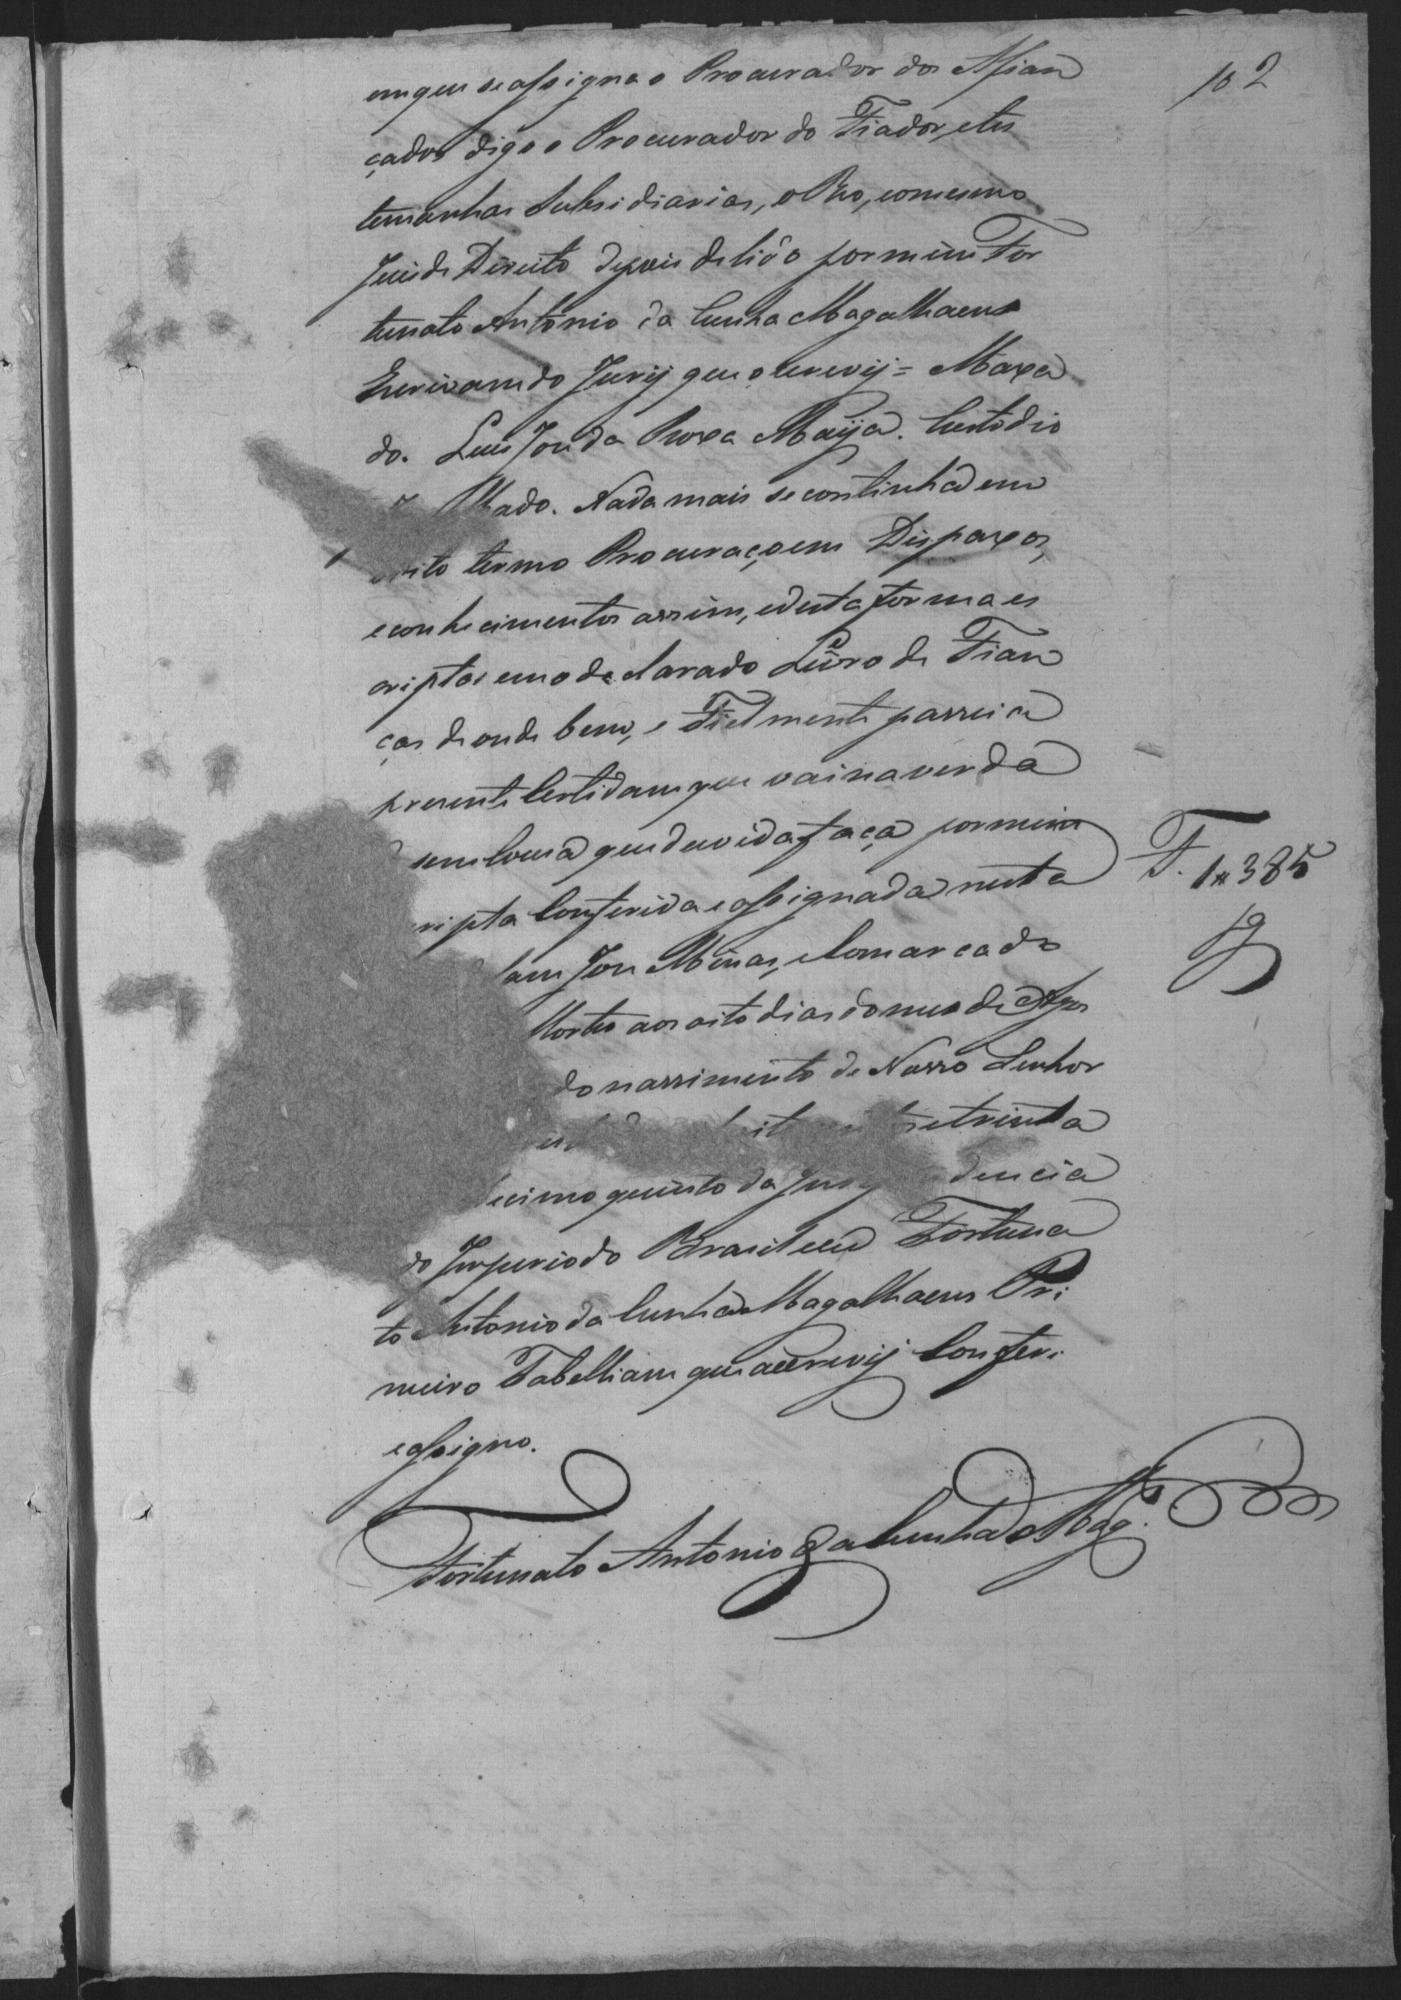 102
em que se assigna o Procurador dos Afian
çados digo o Procurador do Fiador, etes
temunhas Subsidiarias, o Reo, com esmo
Juis de Direito depois de lido por mim For
tunato Antonio da Cunha Magalhaens
Escrivam do Jurij que o escrevij = Maxa
do. Luis Jose da Roxa Maija. Custodio
Maxado. Nada mais se continha em
dito termo Procuraçoens Dispaxos,
econhecimentos assim, e desta forma es
criptos em o declarado Livro de Fian
ças de onde bem, e Fielmente passei a
presente Certidam que vai na verda
sem Couza que duvida faça por mim
cripta Conferida e assignada nesta
Sam Jose Minas, e Comarca do
Mortes aos oito dias do mes de Agos
do nassimento de Nosso Senhor
e trinta
decimo quinto da Independencia
do Imperio do Brasil eeu Fortuna
to Antonio da Cunha Magalhaens Pri
meiro Tabelliam que aescrevij Conferi
e assigno.
Fortunato Antonio da Cunha Mag.es
F. 1#385